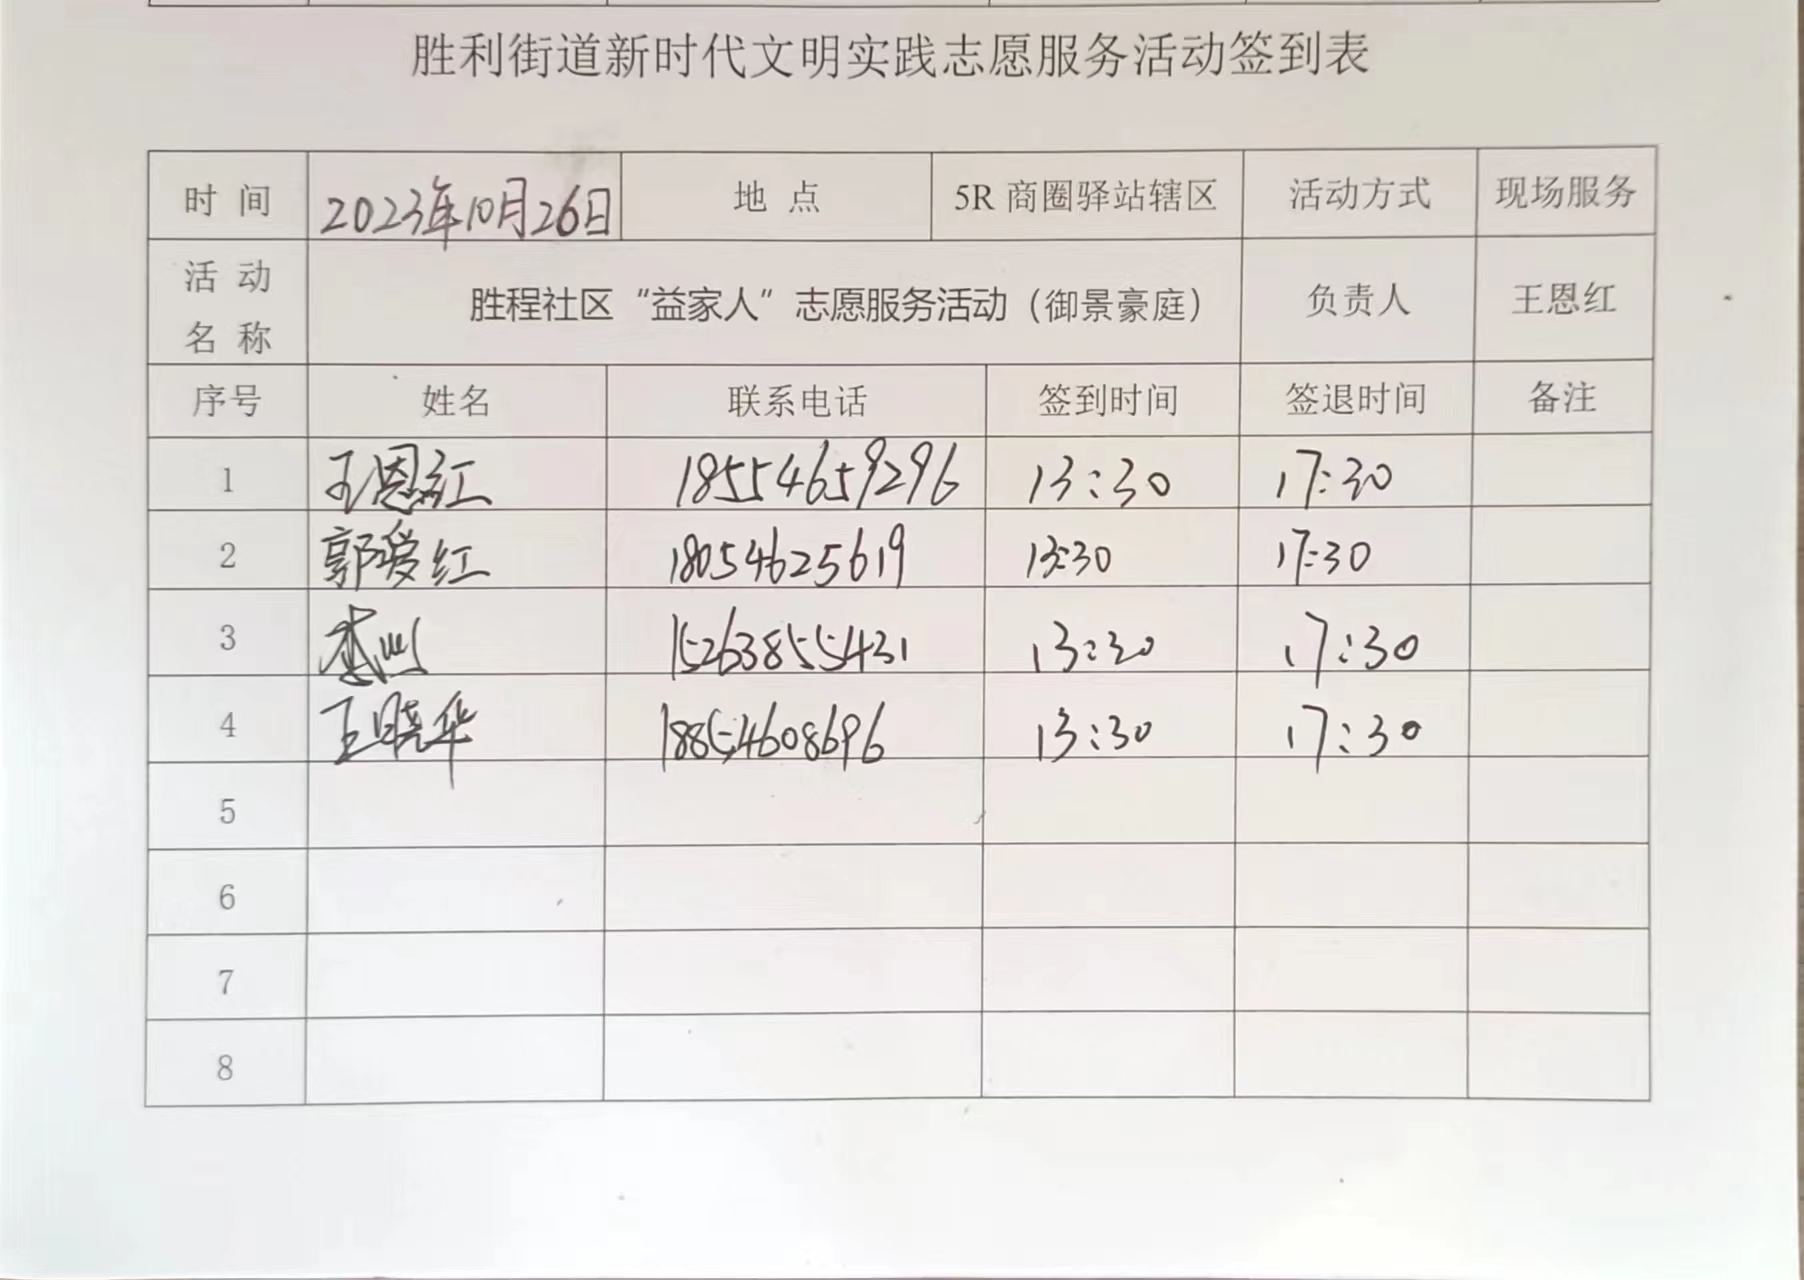 胜利街道新时代文明实践志愿服务活动签到表
时 间 2023年10月26日 地 点 5R 商圈驿站辖区 活动方式 现场服务
活 动
名 称 胜程社区“益家人”志愿服务活动（御景豪庭） 负责人 王恩红
序号 姓名 联系电话 签到时间 签退时间 备注
1 王恩红 18554659296 13:30 17:30
2 郭爱红 18054625619 13:30 17:30
3 15263855431 13:30 17:30
4 王晓华 18854608696 13:30 17:30
5
6
7
8